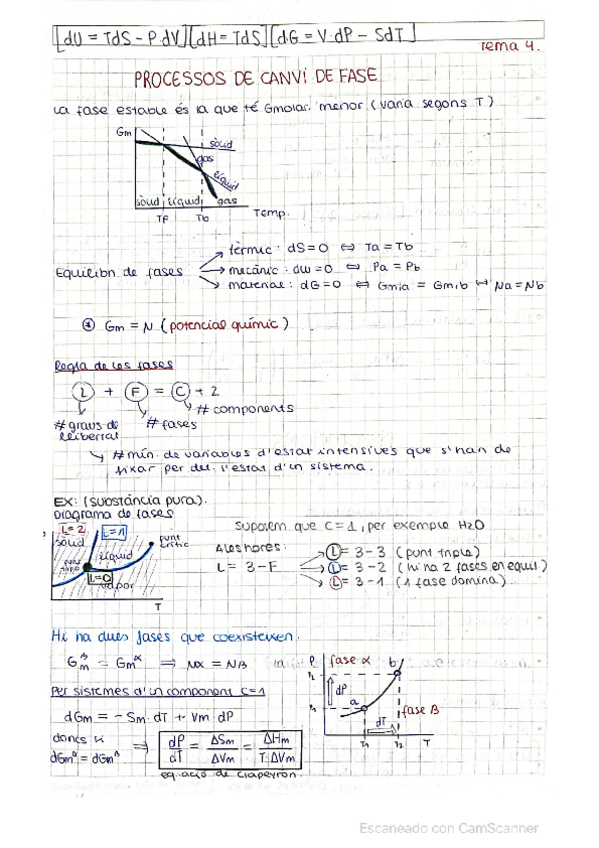 [dU = TdS - P.dV] [dH = TdS] [dG = V.dP - SdT]
Tema 4.
PROCESSOS DE CANVI DE FASE
La fase estable és la que té Gmolar menor (varia segons T)
Gm
sòlid
gas
líquid
sòlid líquid gas
Tf Tb Temp.
tèrmic: dS = 0 ⇔ Ta = Tb
Equilibri de fases mecànic: dw = 0 ⇔ Pa = Pb
material: dG = 0 ⇔ Gm,a = Gm,b ⇔ Na = Nb
* Gm = N (potencial químic)
Regla de les fases
L + F = C + 2
# components
# graus de # fases
llibertat
↳ # mín. de variables d'estat intensives que s'han de
fixar per def. l'estat d'un sistema.
EX: (substància pura).
Diagrama de fases
L=2 L=1
sòlid líquid punt crític
punt triple L=0 vapor
T
Suposem que C = 1, per exemple H2O
Aleshores:
L = 3-F
L = 3-3 (punt triple)
L = 3-2 (hi ha 2 fases en equil.)
L = 3-1 (1 fase domina)
Hi ha dues fases que coexisteixen.
Gm^β = Gm^α ⇒ Nα = NB
Per sistemes d'un component C=1
dGm = - Sm. dT + Vm. dP
doncs si
dGm^α = dGm^β ⇒ dP/dT = ΔSm/ΔVm = ΔHm/T.ΔVm
equació de Clapeyron.
P fase α b
P2
dP
a
P1 fase B
dT
T1 T2 T
Escaneado con CamScanner